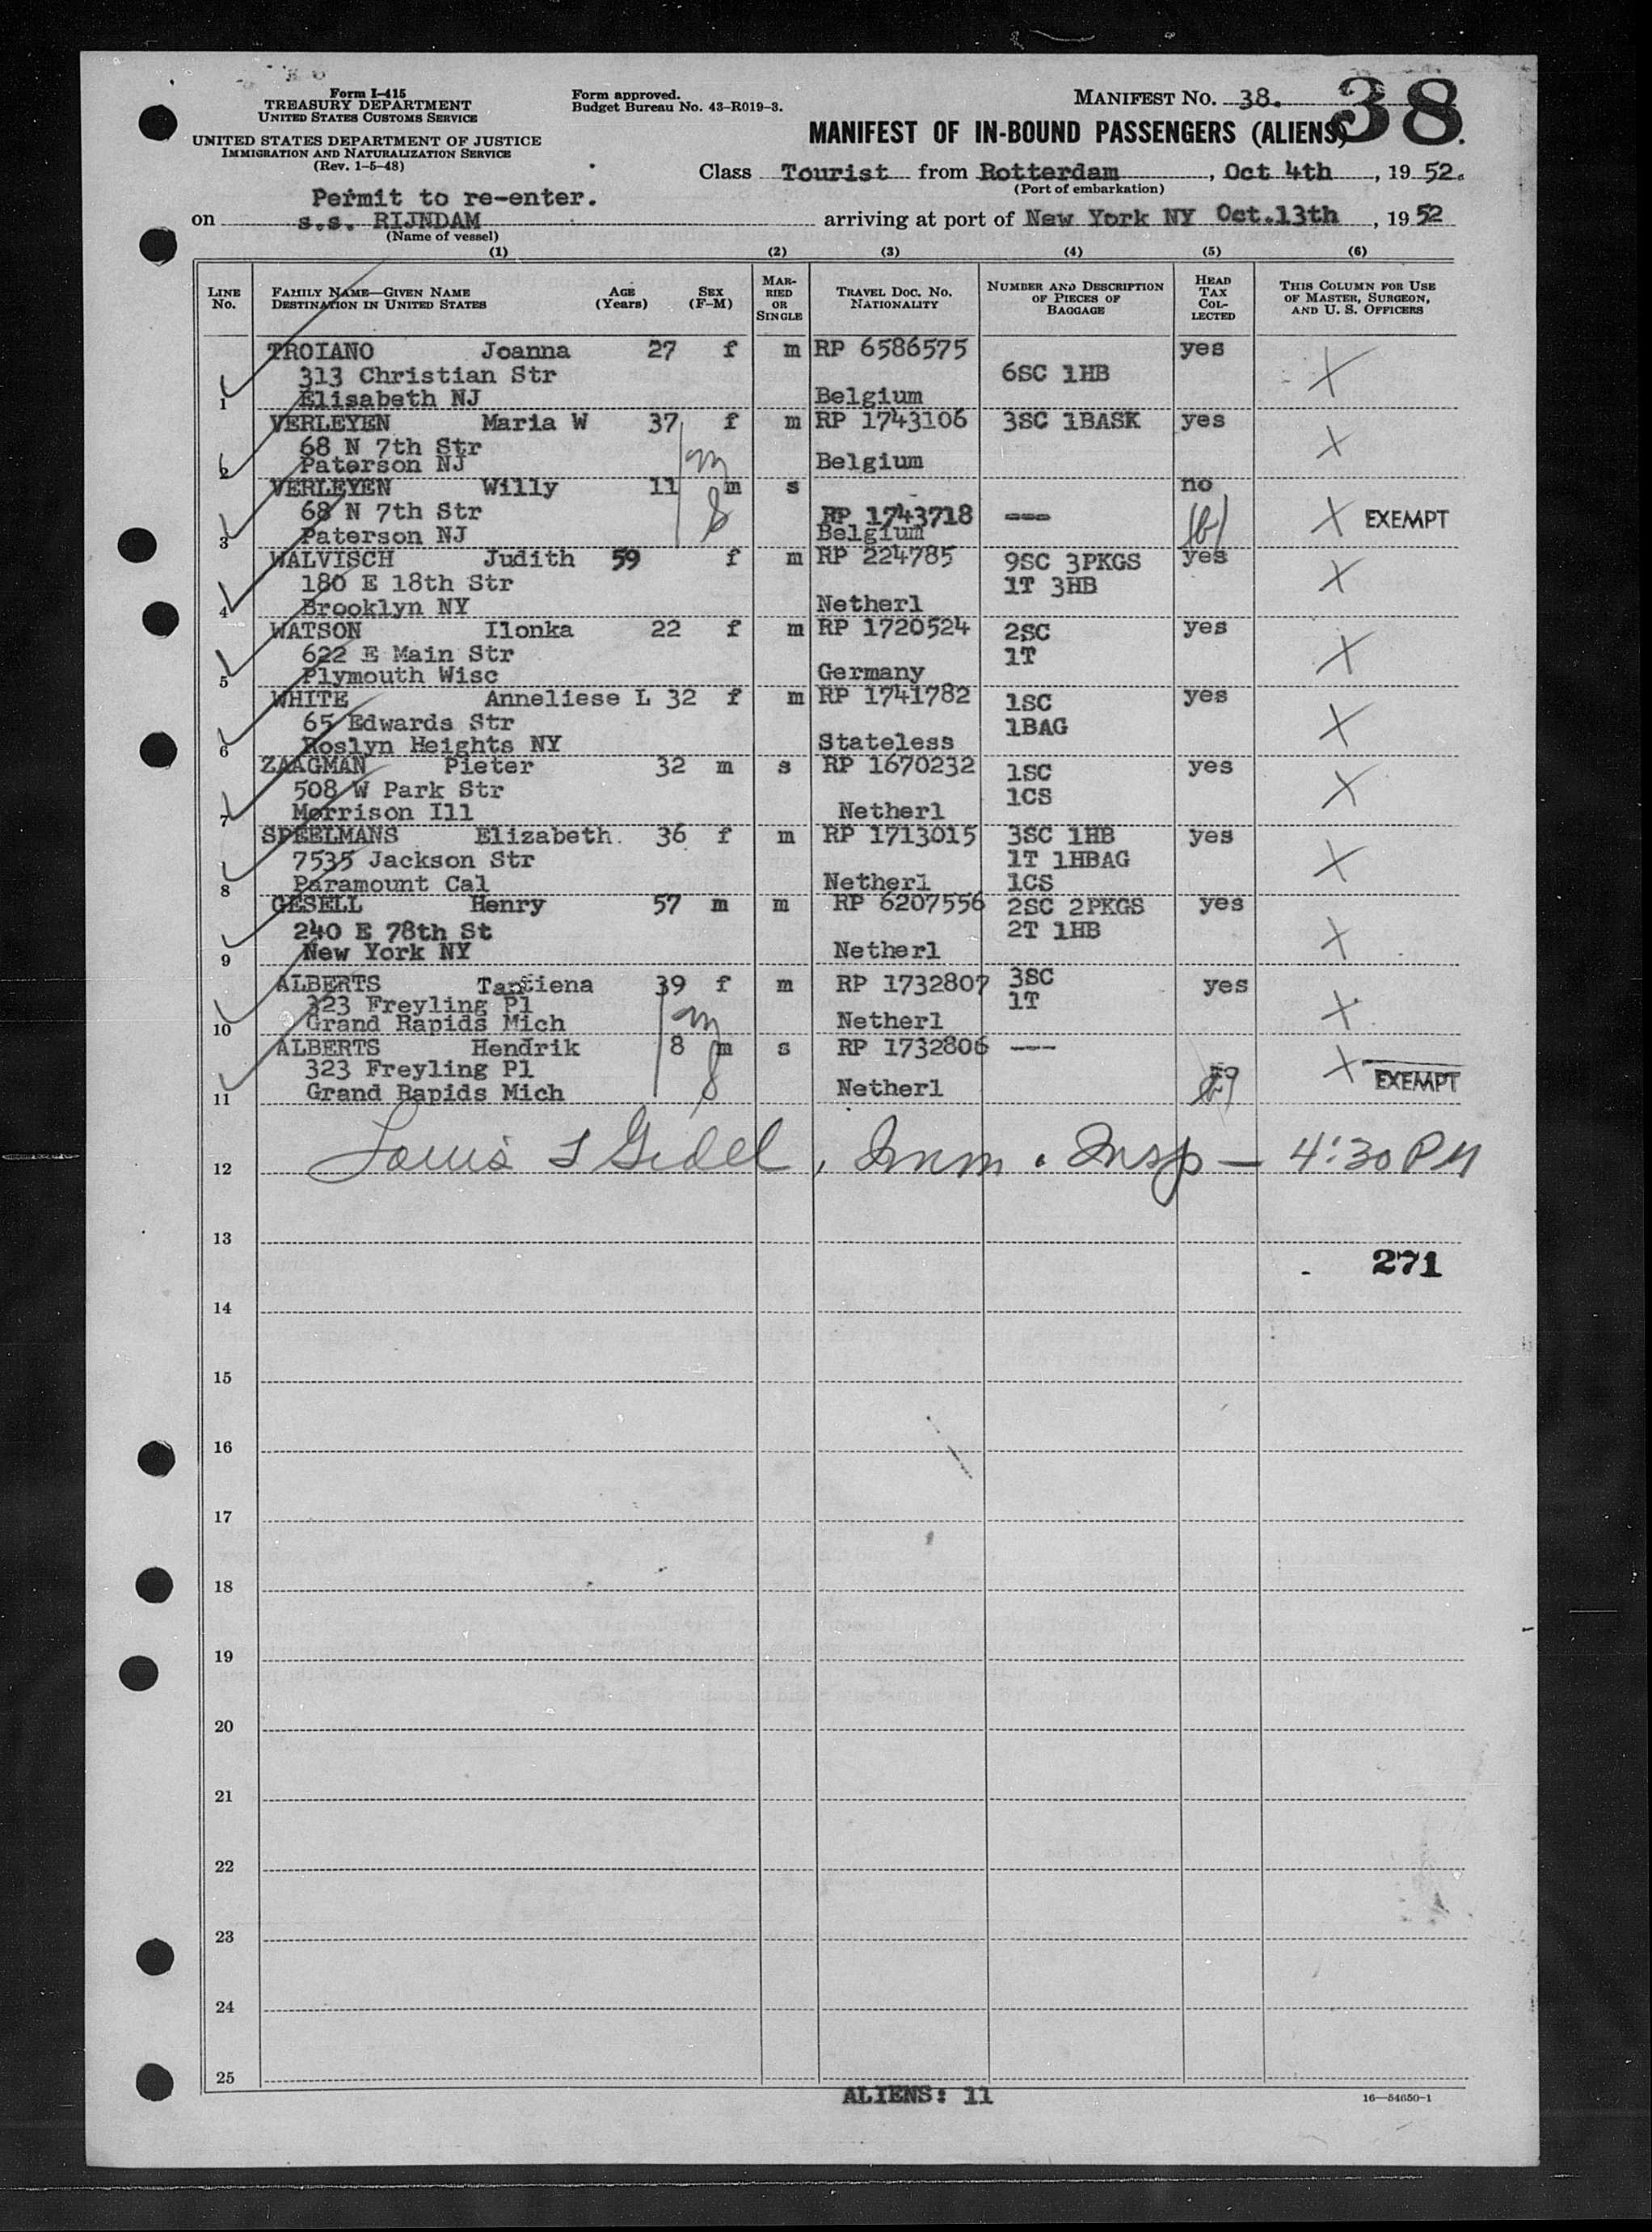 Form I-415
TREASURY DEPARTMENT
UNITED STATES CUSTOMS SERVICE
UNITED STATES DEPARTMENT OF JUSTICE
IMMIGRATION AND NATURALIZATION SERVICE
(Rev. 1-5-48)
Form approved.
Budget Bureau No. 43-R019-3.
MANIFEST NO. 38.
38.
MANIFEST OF IN-BOUND PASSENGERS (ALIENS)
Class Tourist from Rotterdam, Oct 4th, 1952.
(Port of embarkation)
Permit to re-enter.
on s.s. RIJNDAM arriving at port of New York NY Oct.13th, 1952
(Name of vessel)
(1) (2) (3) (4) (5) (6)
LINE NO.
FAMILY NAME—GIVEN NAME
DESTINATION IN UNITED STATES
AGE (Years)
SEX (F-M)
MARRIED OR SINGLE
TRAVEL DOC. NO. NATIONALITY
NUMBER AND DESCRIPTION OF PIECES OF BAGGAGE
HEAD TAX COLLECTED
THIS COLUMN FOR USE OF MASTER, SURGEON, AND U. S. OFFICERS
TROIANO Joanna 27 f m RP 6586575 yes
313 Christian Str 6SC 1HB X
1 Elisabeth NJ Belgium
VERLEYEN Maria W 37 f m RP 1743106 3SC 1BASK yes
68 N 7th Str X
2 Paterson NJ m Belgium
VERLEYEN Willy 11 m s no
68 N 7th Str 8 RP 1743718 --- (b) X EXEMPT
3 Paterson NJ Belgium
WALVISCH Judith 59 f m RP 224785 9SC 3PKGS yes
180 E 18th Str 1T 3HB X
4 Brooklyn NY Netherl
WATSON Ilonka 22 f m RP 1720524 2SC yes
622 E Main Str 1T X
5 Plymouth Wisc Germany
WHITE Anneliese L 32 f m RP 1741782 1SC yes
65 Edwards Str 1BAG X
6 Roslyn Heights NY Stateless
ZAAGMAN Pieter 32 m s RP 1670232 1SC yes
508 W Park Str 1CS X
7 Morrison Ill Netherl
SPEELMANS Elizabeth. 36 f m RP 1713015 3SC 1HB yes
7535 Jackson Str 1T 1HBAG X
8 Paramount Cal Netherl 1CS
GESELL Henry 57 m m RP 6207556 2SC 2PKGS yes
240 E 78th St 2T 1HB X
9 New York NY Netherl
ALBERTS 39 f m RP 1732807 3SC yes
323 Freyling Pl 1T X
10 Grand Rapids Mich m Netherl
ALBERTS Hendrik 8 m s RP 1732806 ---
323 Freyling Pl X EXEMPT
11 Grand Rapids Mich 8 Netherl
12 Louis Gidel, Imm. Insp — 4:30 PM
13
271
14
15
16
17
18
19
20
21
22
23
24
25
ALIENS: 11
16—54650-1